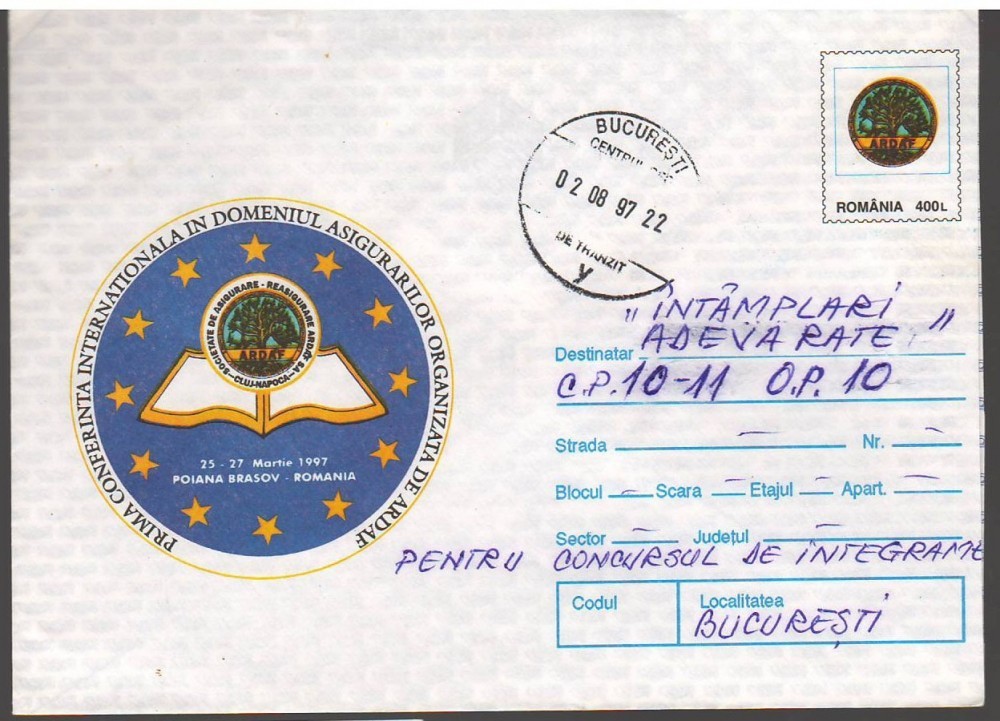 ARDAF
ROMÂNIA 400L
BUCUREȘTI
CENTRUL
02 08 97 22
DE TRANZIT
PRIMA CONFERINTA INTERNATIONALA IN DOMENIUL ASIGURARILOR ORGANIZATA DE ARDAF
SOCIETATE DE ASIGURARE - REASIGURARE ARDAF SA
ARDAF
CLUJ-NAPOCA
25 - 27 Martie 1997
POIANA BRASOV - ROMANIA
„ÎNTÂMPLARI
Destinatar ADEVARATE"
C.P. 10-11 O.P. 10
Strada Nr.
Blocul Scara Etajul Apart.
Sector Județul
PENTRU CONCURSUL DE INTEGRAME
Codul Localitatea
BUCUREȘTI